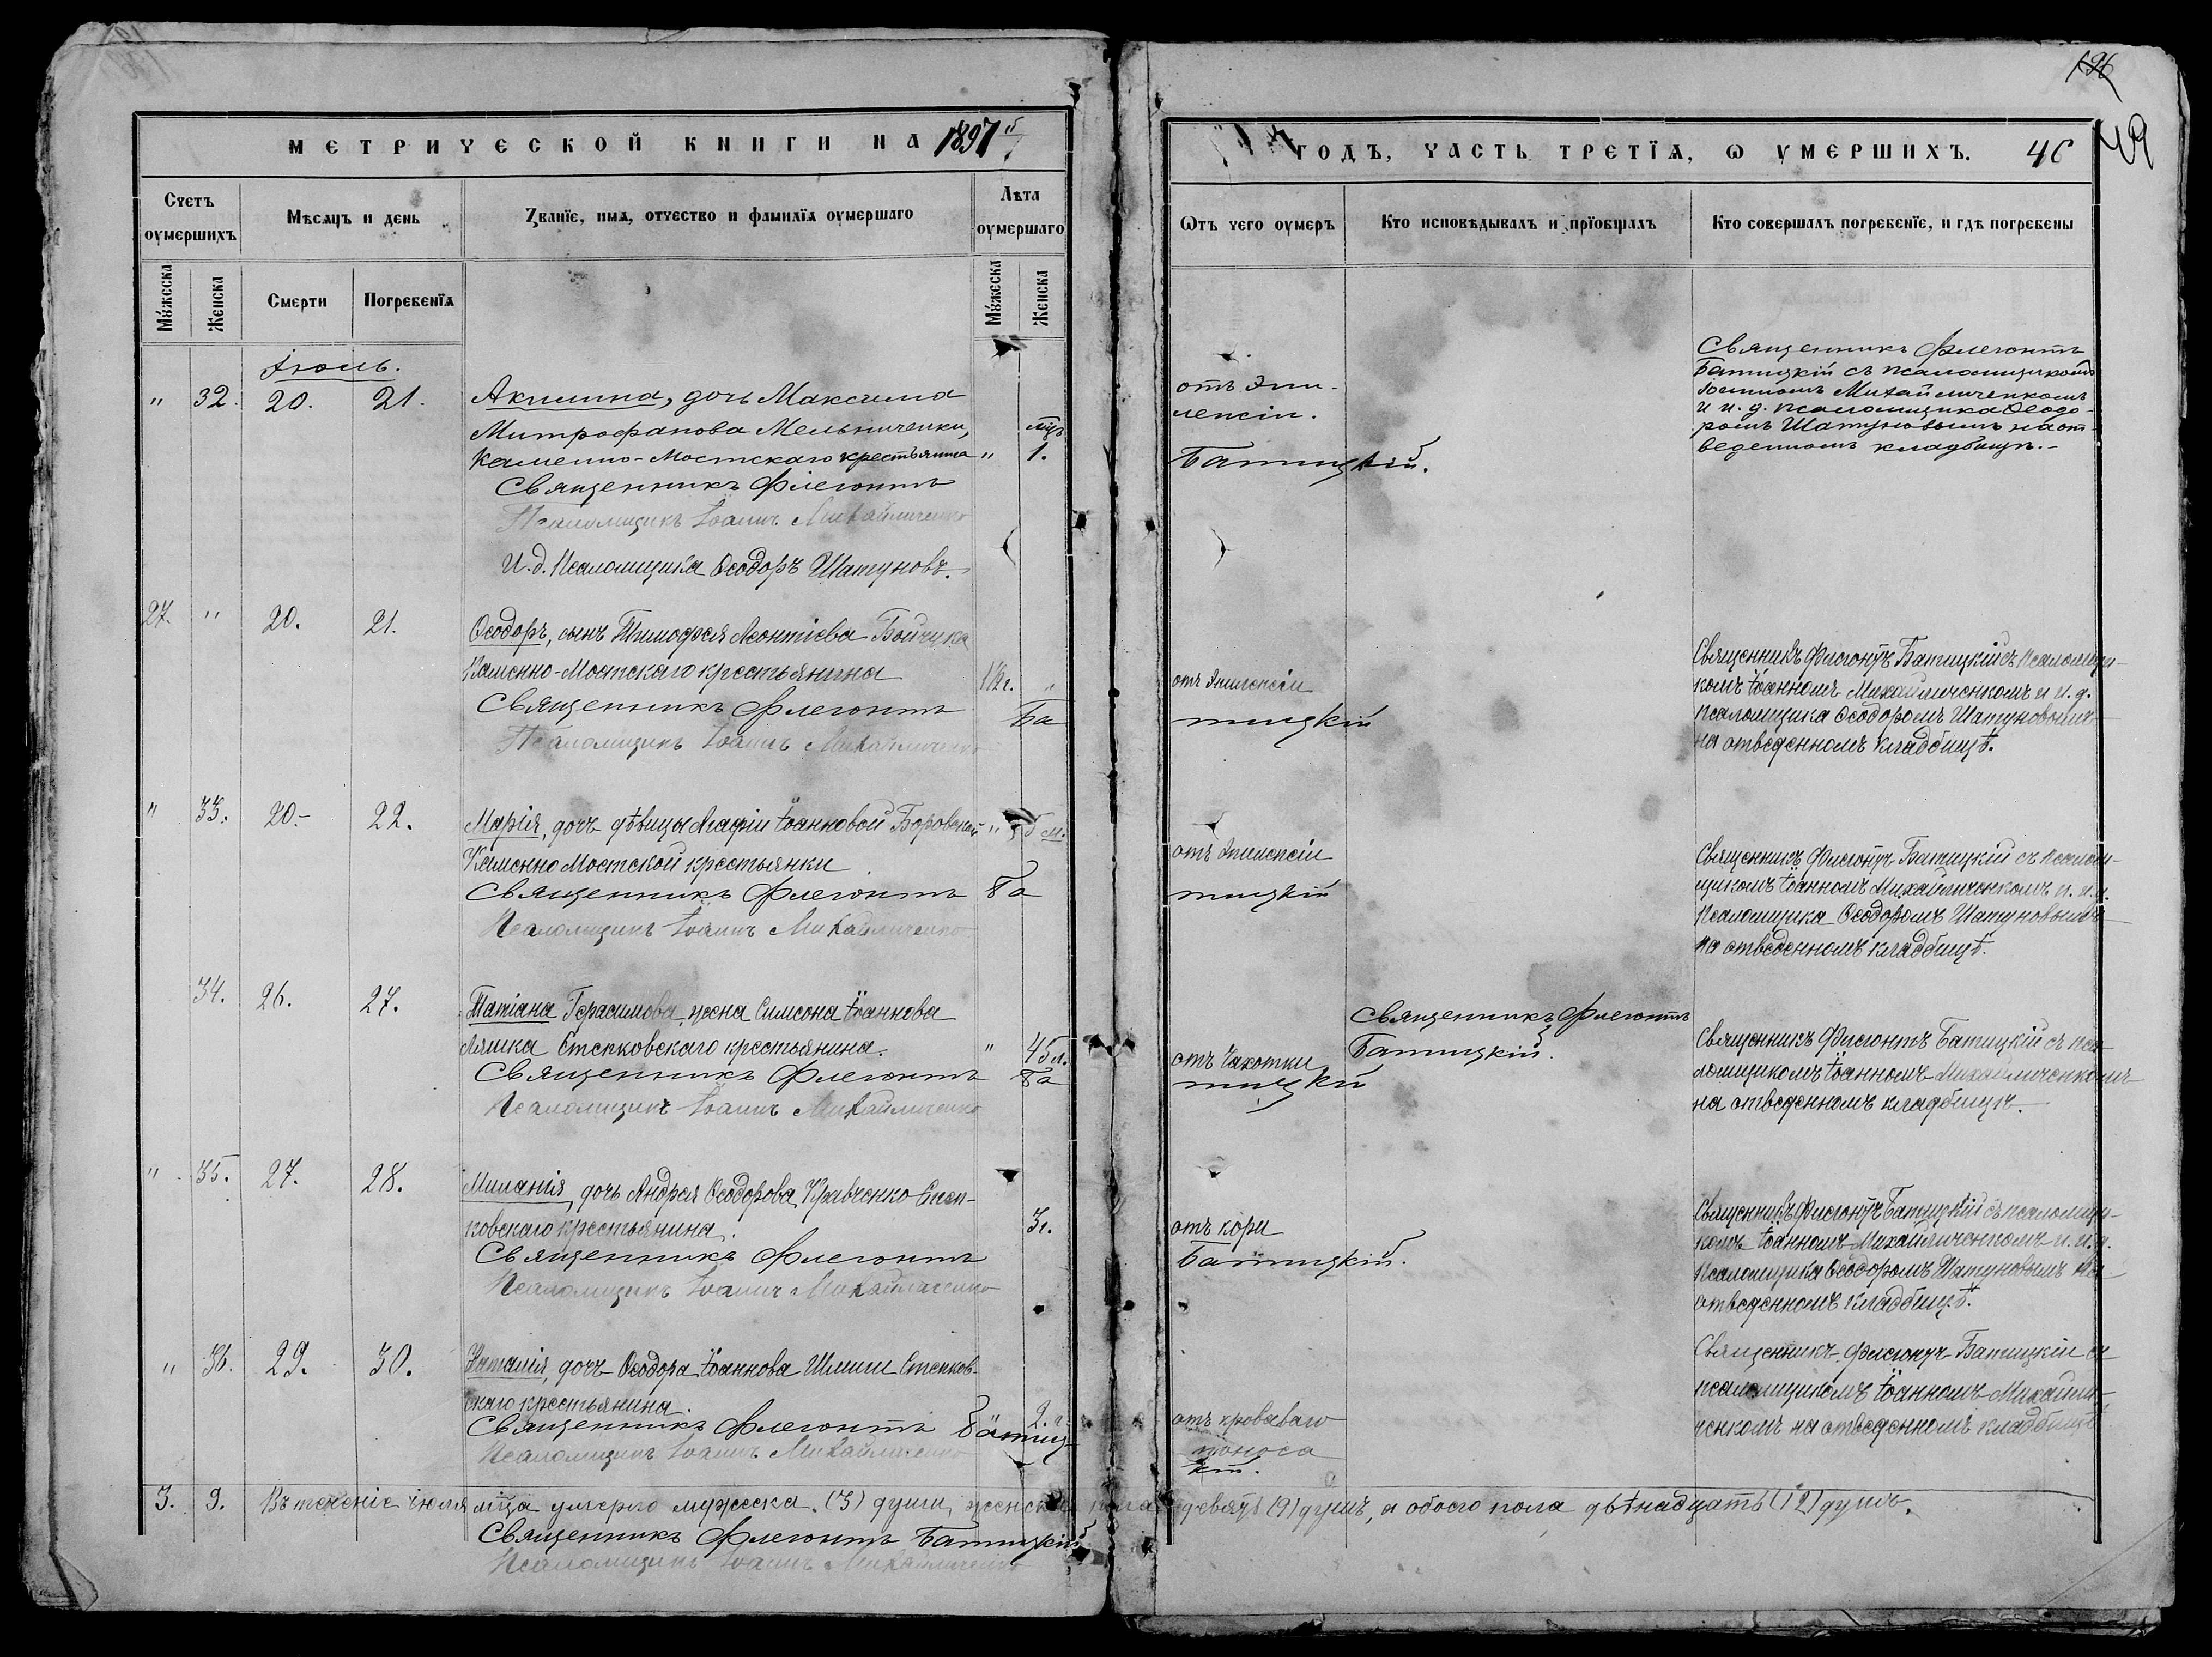 МЕТРИЧЕСКОЙ КНИГИ НА 1897
Счетъ оумершихъ
Мѣсяцъ и день
Званіе, имя, отчество и фамилія оумершаго
Лѣта оумершаго
Мужеска
Женска
Смерти
Погребенія
Мужеска
Женска
Іюль.
" 32. 20. 21.
Акилина, дочь Максима
Митрофанова Мельниченки, мцъ
Каменно-Мостскаго крестьянина " 1.
Священникъ Флегонтъ
Псаломщикъ Іоаннъ Михайличенко
И. д. Псаломщика Ѳеодоръ Шатуновъ.
27. " 20. 21.
Ѳеодоръ, сынъ Тимофея Леонтіева Бойчука
Каменно-Мостскаго крестьянина 1½г. "
Священникъ Флегонтъ Ба
Псаломщикъ Іоаннъ Михайличенко
" 33. 20.- 22.
Марія, дочь дѣвицы Агафіи Іоанновой Боровской " 5 м.
Каменно Мостской крестьянки
Священникъ Флегонтъ Ба
Псаломщикъ Іоаннъ Михайличенко
34. 26. 27.
Татіана Герасимова, жена Симеона Іоаннова
Ляшка Степковскаго крестьянина. " 45л.
Священникъ Флегонтъ Ба
Псаломщикъ Іоаннъ Михайличенко
" 35. 27. 28.
Миланія, дочь Андрея Ѳеодорова Кравченко Степ-
ковскаго крестьянина. 3г.
Священникъ Флегонтъ
Псаломщикъ Іоаннъ Михайличенко
" 36. 29. 30.
Наталія, дочь Ѳеодора Іоаннова Шлиши Степков-
скаго крестьянина. 2.г.
Священникъ Флегонтъ Батиц-
Псаломщикъ Іоаннъ Михайличенко
3. 9. Въ теченіе іюля мѣца умерло мужеска (3) души, женска пола девять (9) душъ, а обоего пола двѣнадцать (12) душъ.
Священникъ Флегонтъ Батицкій
Псаломщикъ Іоаннъ Михайличенко
196
49
ГОДЪ, ЧАСТЬ ТРЕТІЯ, Ѡ УМЕРШИХЪ. 46
Ѡтъ чего оумеръ
Кто исповѣдывалъ и пріобщалъ
Кто совершалъ погребеніе, и гдѣ погребены
отъ эпи-
лепсіи.
Батицкій.
Священникъ Флегонтъ
Батицкій съ псаломщикомъ
Іоанномъ Михайличенкомъ
и и. д. псаломщика Ѳеодо-
ромъ Шатуновымъ на от-
веденномъ кладбищѣ.-
отъ эпилепсіи
тицкій
Священникъ Флегонтъ Батицкій съ псаломщи-
комъ Іоанномъ Михайличенкомъ и и. д.
псаломщика Ѳеодоромъ Шатуновымъ
на отведенномъ кладбищѣ.
отъ эпилепсіи
тицкій
Священникъ Флегонтъ Батицкій съ псалом-
щикомъ Іоанномъ Михайличенкомъ и. и. д.
псаломщика Ѳеодоромъ Шатуновымъ
на отведенномъ кладбищѣ.
отъ чахотки
тицкій
Священникъ Флегонтъ
Батицкій.
Священникъ Флегонтъ Батицкій съ пса-
ломщикомъ Іоанномъ Михайличенкомъ
на отведенномъ кладбищѣ.
отъ кори
Батицкій.
Священникъ Флегонтъ Батицкій съ псаломщи-
комъ Іоанномъ Михайличенкомъ и. и. д.
псаломщика Ѳеодоромъ Шатуновымъ на
отведенномъ кладбищѣ.
отъ кроваваго
поноса
кій.
Священникъ Флегонтъ Батицкій съ
псаломщикомъ Іоанномъ Михайли-
ченкомъ на отведенномъ кладбищѣ